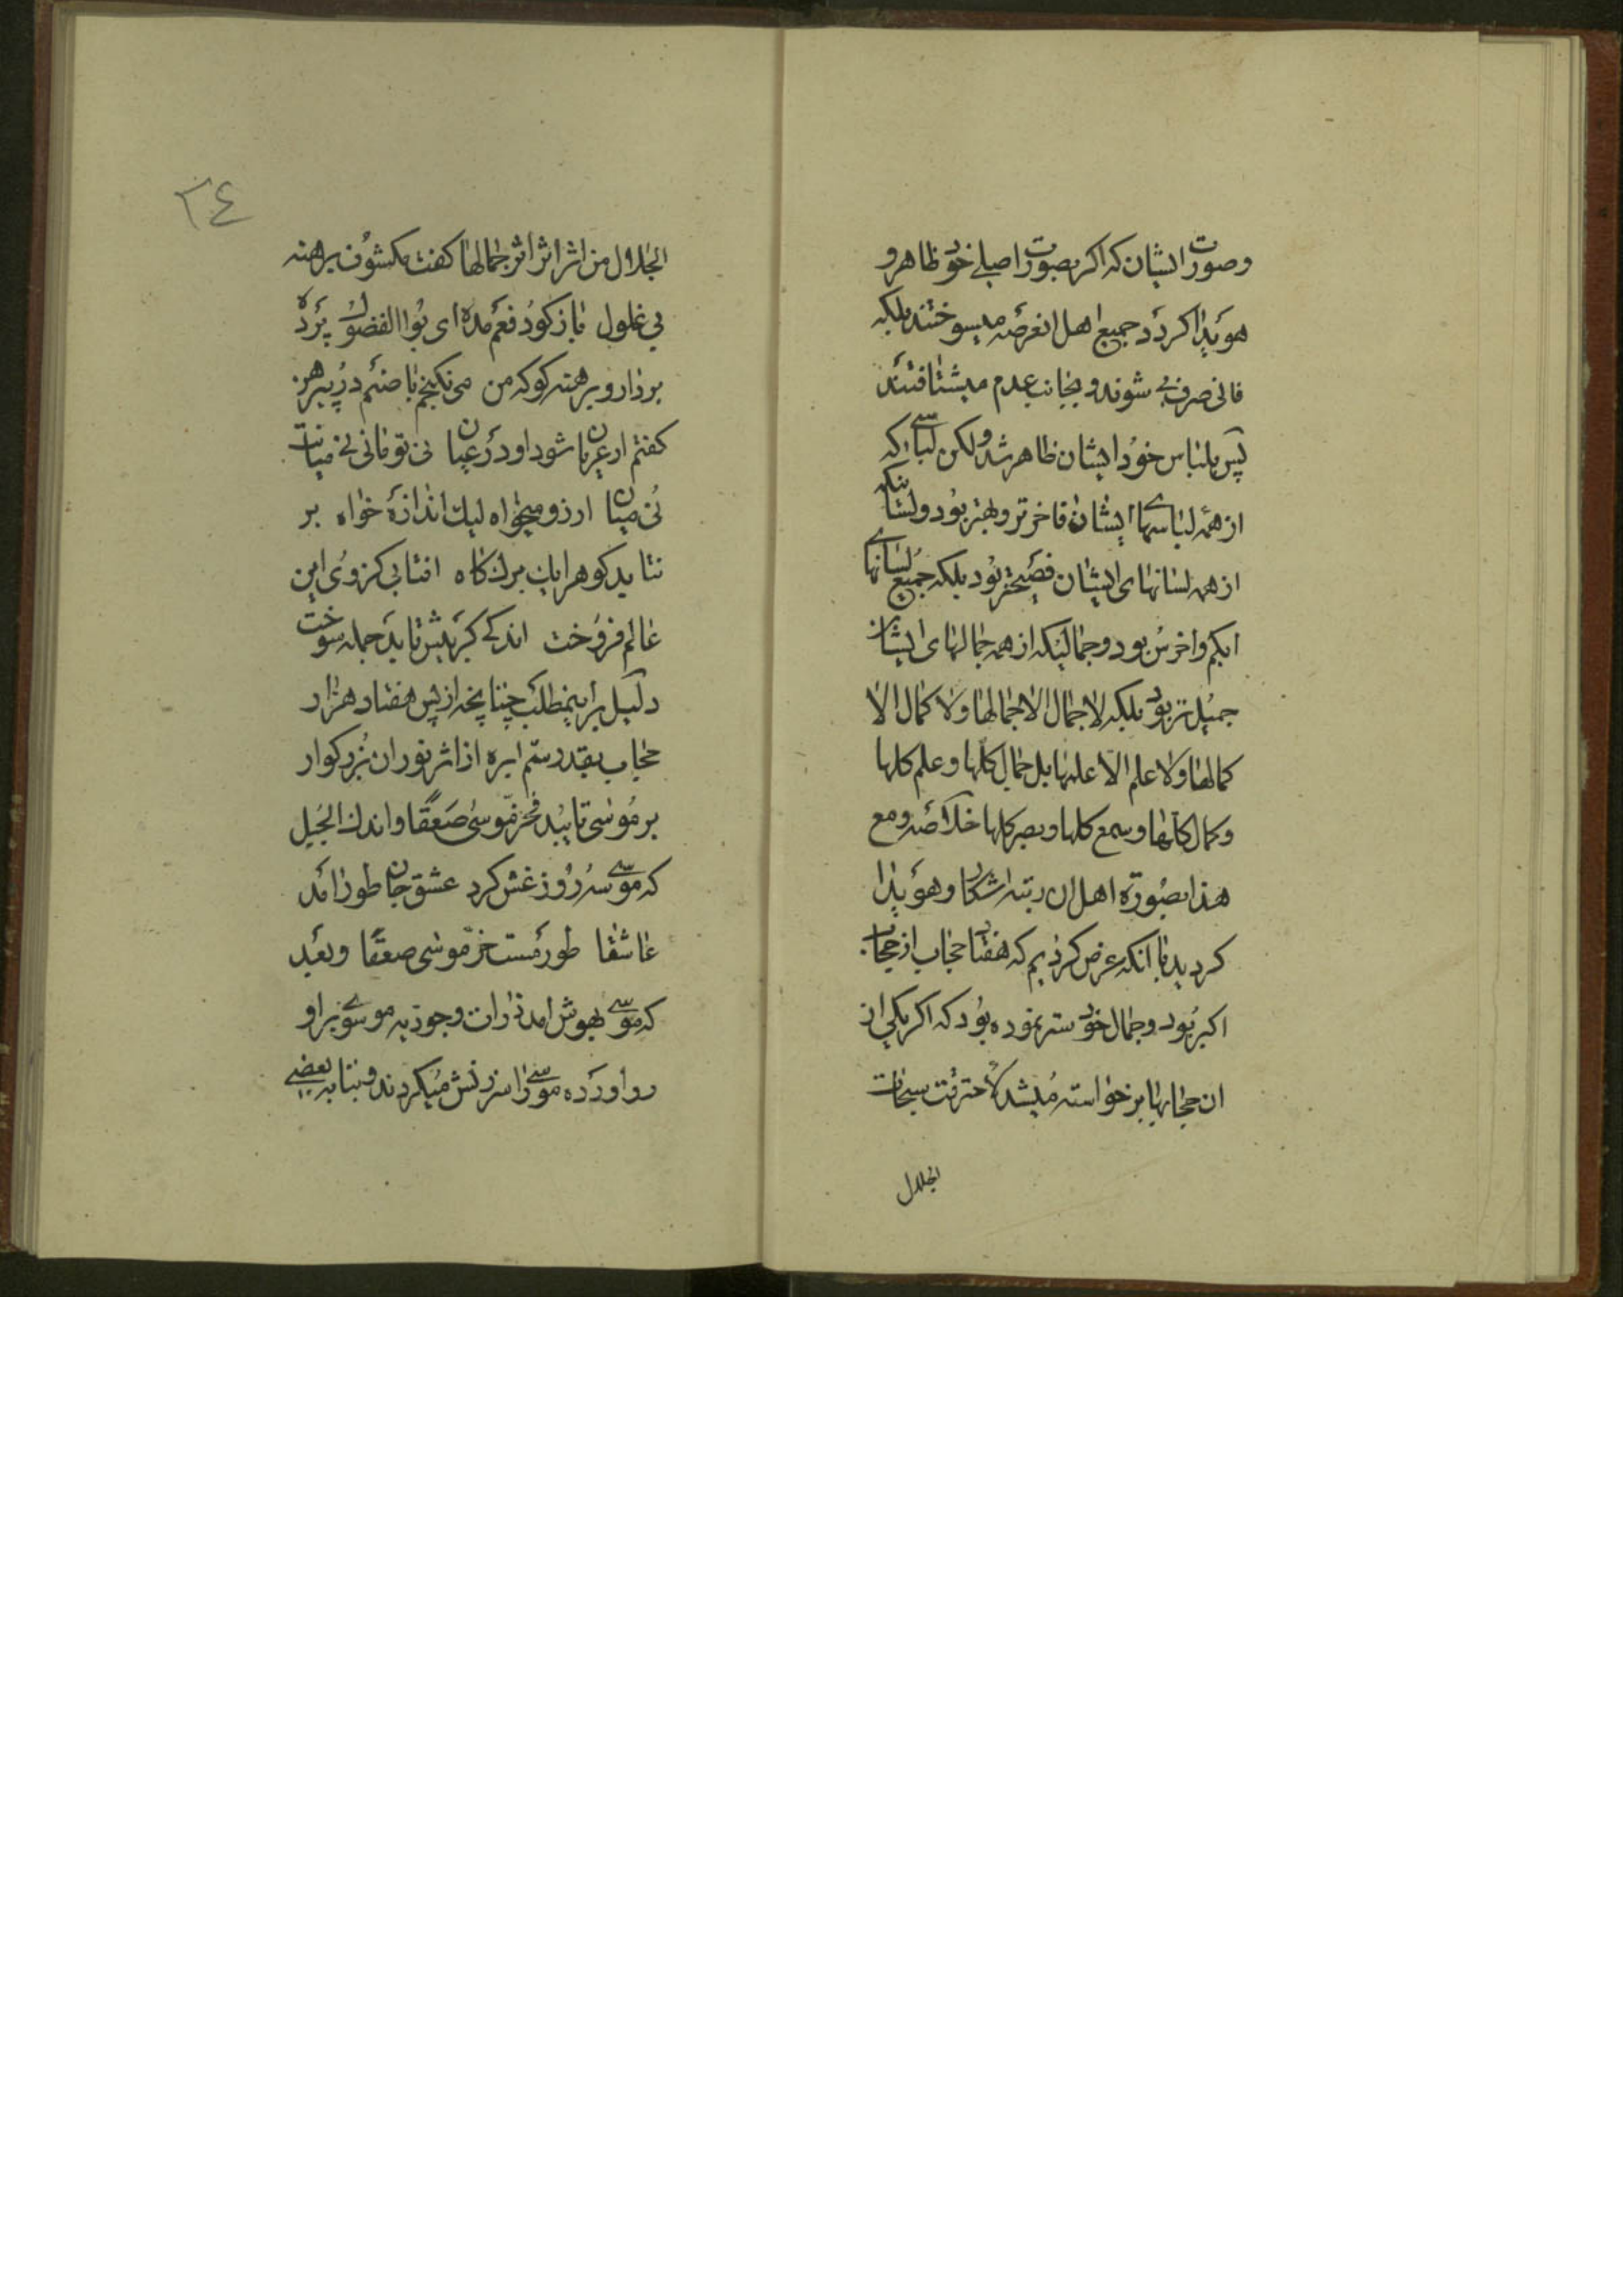 وصورت ایشان که اکر بصورت اصلی خود ظاهر و
هویدا کردد جمیع اهل انعرصه میسوختند بلکه
فانی صرف می شوند و بجانب عدم میشتافتند
پس بلباس خود ایشان ظاهر شد ولکن لباسی که
از همه لباسهای ایشان فاخرتر و بهتر بود ولسانیکه
از همه لسانهای ایشان فصیحتر بود بلکه جمیع لسانهای
ابکم واخرس بود وجمالیکه از همه جمالهای ایشان
جمیل تر بود بلکه لا جمال الا جمالها ولا کمال الا
کمالها ولا علم الا علمها بل جمال کلها وعلم کلها
وکمال کلها وسمع کلها وبصر کلها خلاصه ومع
هذا بصورة اهل ان رتبه اشکار وهویدا
کردید با انکه عرض کردیم که هفتاد حجاب از حجاب
اکبر بود وجمال خود ستر نموده بود که اکر یکی از
ان حجابها برخواسته میشد لاحترقت سبحات
الجلال
٢٤
الجلال من اثر اثر اثر جمالها کفت مکشوف برهنه
بی غلول باز کو دفعم مده ای بوا الفضول پرده
بردار و برهنه کو که من می نکنجم با صنم در پیرهن
کفتم ار عریان شود او در عیان نی تو مانی نی میانت
نی میان ارزو میخواه لیک اندازه خواه بر
نتابد کوه را یک برک کاه افتابی کز وی این
عالم فروخت اندکی کر پیش تابد جمله سوخت
دلیل بر اینمطلب چنانچه از پس هفتاد هزار
حجاب بقدر سم ابره از اثر نور ان بزرکوار
بر موسی تابید فخر موسی صعقا واندک الجبل
که موسی سه روز غش کرد عشق جان طور امد
عاشقا طور مست خر موسی صعقا وبعد
که موسی بهوش امد ذرات وجودیه موسی بر او
رو اورده موسی را سرزنش میکردند وبنا به بعضی